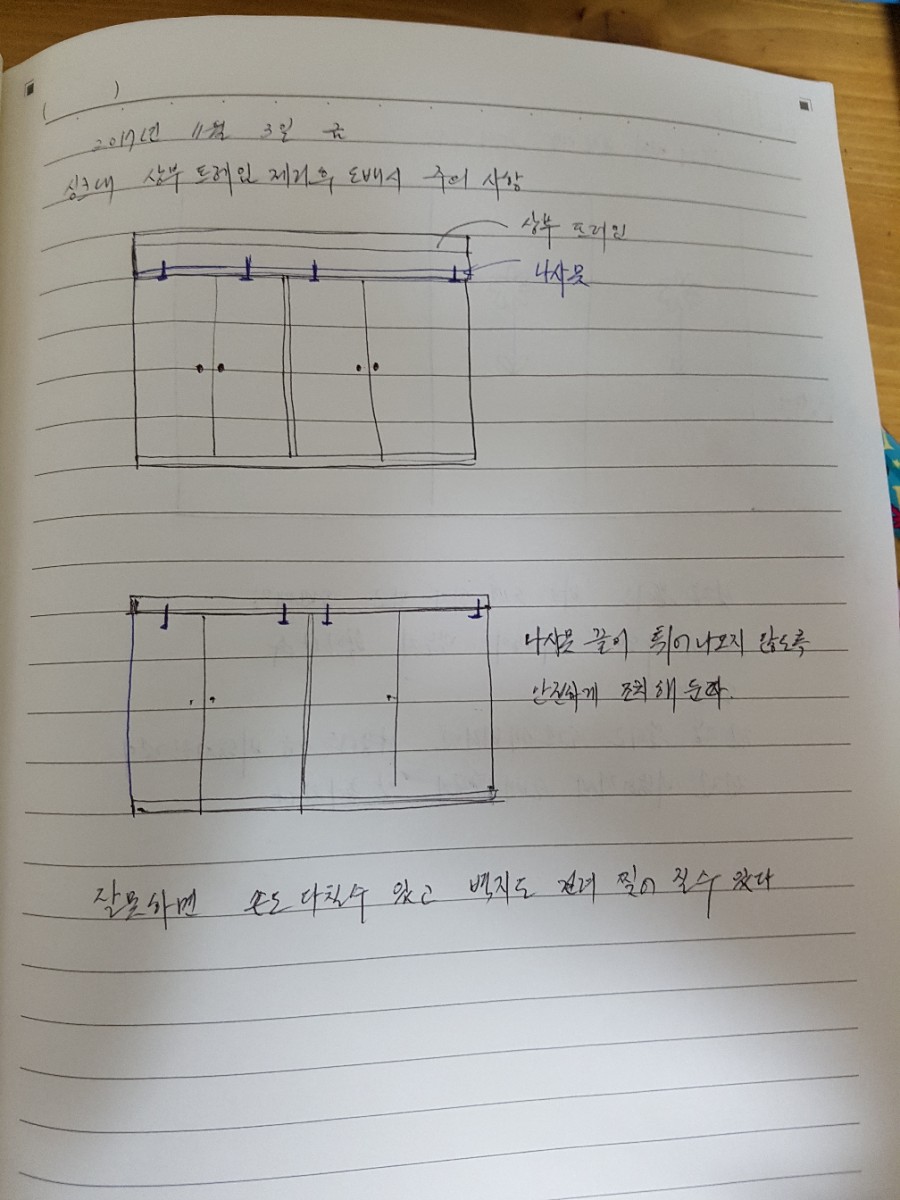 ( )
2017년 11월 3일 금
싱크대 상부 프레임 제거후 도배시 주의 사항
상부 프레임
나사못
나사못 끝이 튀어나오지 않도록
안전하게 조치해 둔다.
잘못하면 손도 다칠수 있고 벽지도 걸려 찢어 질수 있다